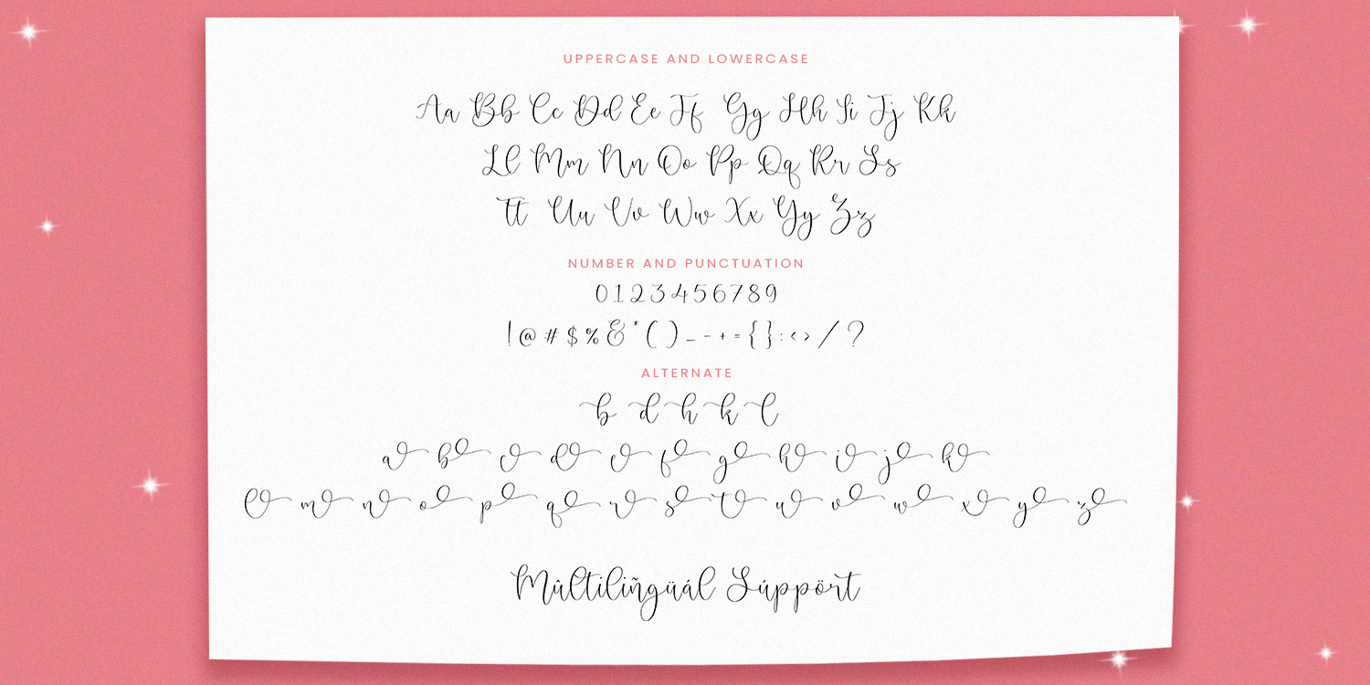 UPPERCASE AND LOWERCASE
Aa Bb Cc Dd Ee Ff Gg Hh Ii Jj Kk
Ll Mm Nn Oo Pp Qq Rr Ss
Tt Uu Vv Ww Xx Yy Zz
NUMBER AND PUNCTUATION
0123456789
!@#$%&*()_-+={}:<>/?
ALTERNATE
b d h k l
a b c d e f g h i j k
l m n o p q r s t u v w x y z
Múltiliñgüál Súppört